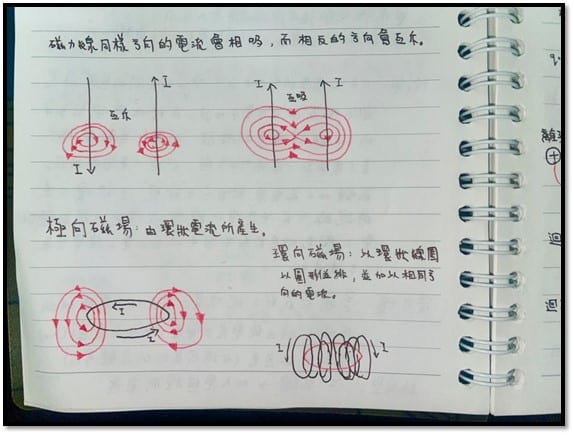 磁力線同樣方向的電流會相吸，而相反的方向會互斥。
I
I
I
I
互斥
互吸
I
極向磁場：由環狀電流所產生。
環向磁場：以環狀線圈
以圓形並排，並加以相同方
向的電流。
I
I
I
I